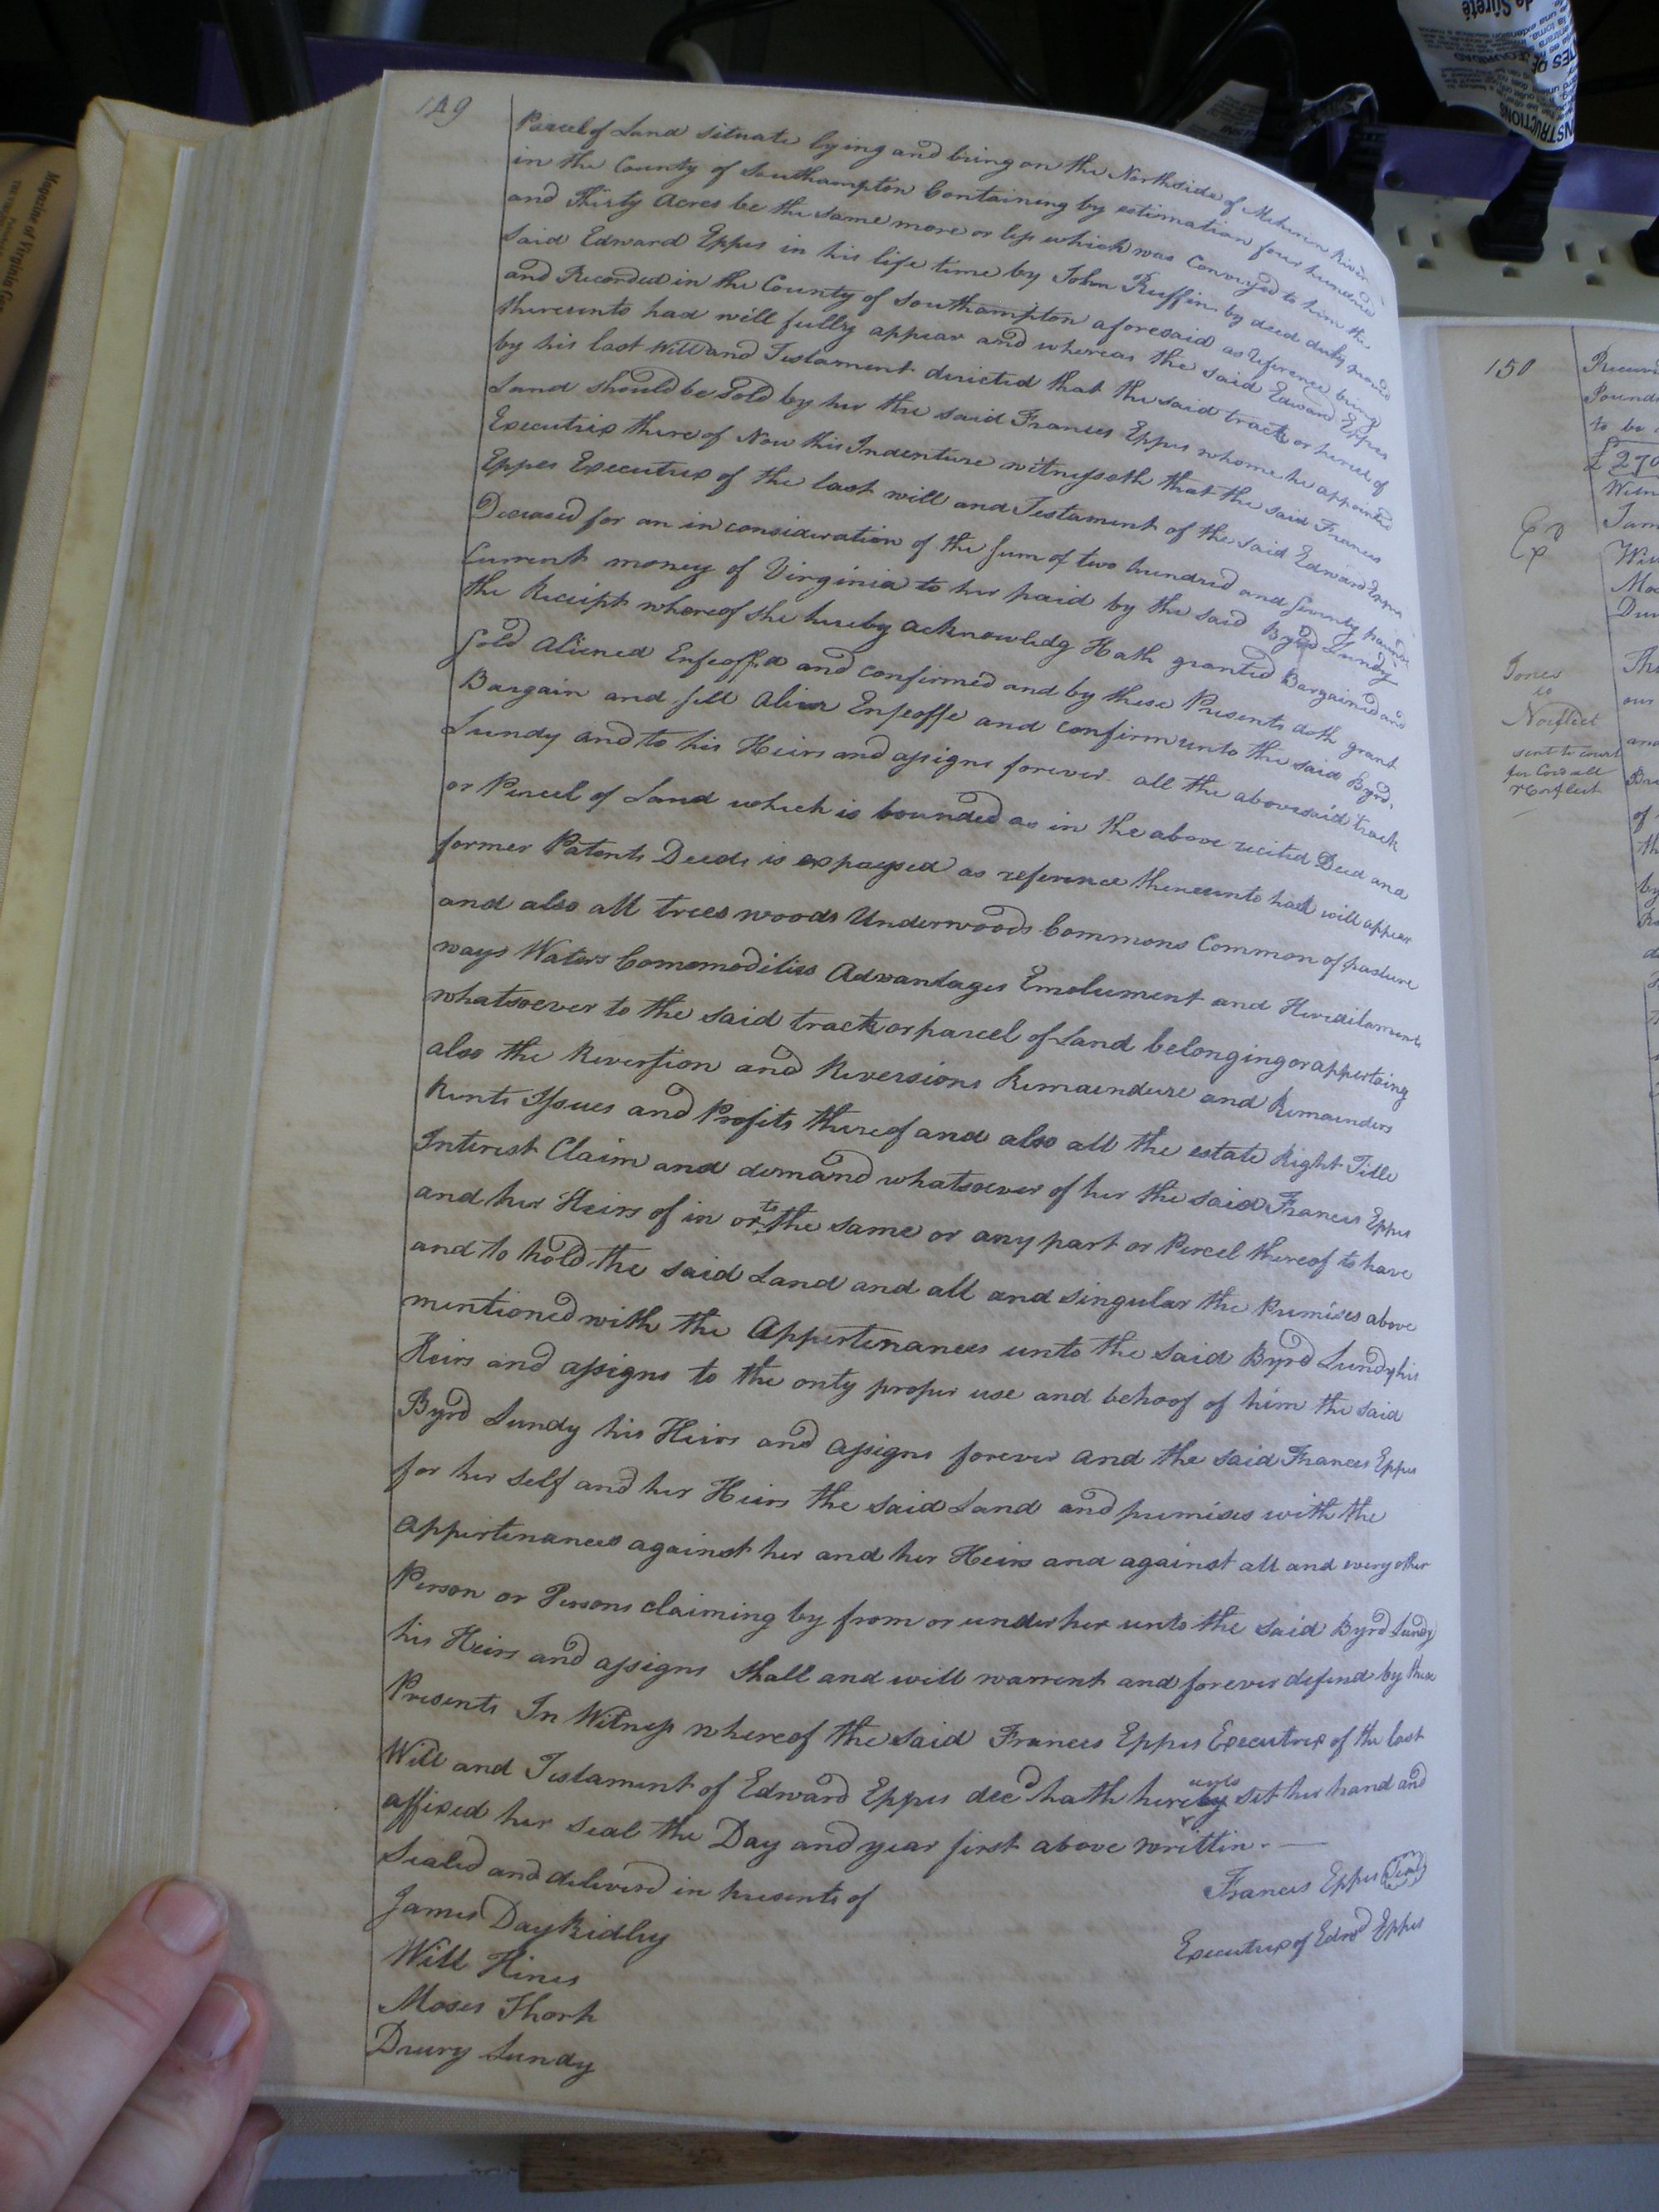 149
Parcel of Land situate lying and being on the Northside of Meherin River
in the County of Southampton Containing by estimation four hundred
and Thirty Acres be the same more or less which was Conveyed to him the
said Edward Eppes in his life time by John Ruffin by deed duly proved
and Recorded in the County of Southampton aforesaid as reference being
thereunto had will fully appear and whereas the said Edward Eppes
by his last Will and Testament directed that the said tract or parcel of
Land should be sold by her the said Frances Eppes whome he appointed
Executrix there of Now this Indenture witnesseth that the said Frances
Eppes Executrix of the last will and Testament of the said Edward Eppes
Deceased for an in consideration of the sum of two hundred and seventy pounds
Current money of Virginia to her paid by the said Byrd Lundy
the Receipt whereof she hereby acknowledg Hath granted Bargained and
sold Aliened Enfeoff,d and confirmed and by these Presents doth grant
Bargain and sell alien Enfeoffe and confirm unto the said Byrd
Lundy and to his Heirs and assigns forever all the abovesaid track
or Percel of Land which is bounded as in the above recited Deed and
former Patents Deeds is expressed as reference thereunto had will appear
and also all trees woods Underwoods Commons Common of pasture
ways Waters Comomodities Advantages Emolument and Hereditaments
whatsoever to the said tract or parcel of Land belonging or appertaing
also the Reversion and Reversions Remaindure and Remainders
Rents Issues and Profits thereof and also all the estate Right Title
Interest Claim and demand whatsoever of her the said Frances Eppes
and her Heirs of in or to the same or any part or Percel thereof to have
and to hold the said Land and all and singular the Premises above
mentioned with the Appertenances unto the said Byrd Lundy his
Heirs and assigns to the only proper use and behoof of him the said
Byrd Lundy his Heirs and assigns forever and the said Frances Eppes
for her self and her Heirs the said Land and premises with the
appertenances against her and her Heirs and against all and every other
Person or Persons claiming by from or under her unto the said Byrd Lundy
his Heirs and assigns shall and will warrent and forever defend by these
Presents In Witness whereof the said Frances Eppes Executrix of the last
Will and Testament of Edward Eppes decd hath hereunto set her hand and
affixed her seal the Day and year first above writtin.
Sealed and deliverd in presents of
Frances Eppes Seal
James Day Ridley
Executrix of Edwd Eppes
Will Hines
Moses Thorp
Drury Lundy
150
£270
Exd
Jones
to
Norfleet
sent to court
for Cordall
Norfleet
Magazine of Virginia
de Sûreté
INSTRUCTIONS